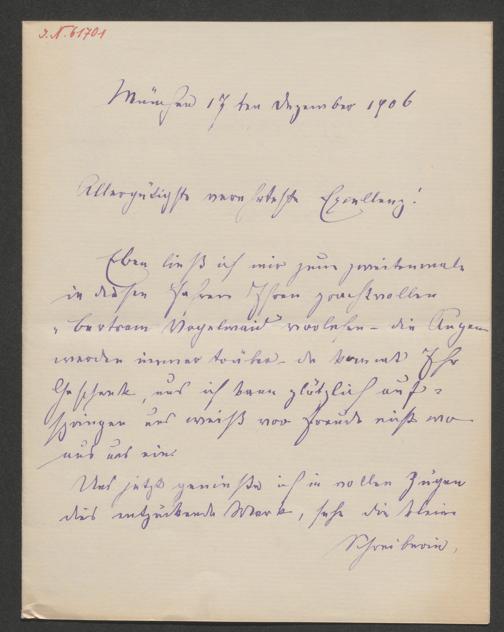 J.N. 61701
München 17ten Dezember 1906
Allergütigste verehrteste Excellenz!
Eben ließ ich mir zum zweitenmale
in diesen Jahren Ihren prachtvollen
"Bertram Vogelweid" vorlesen – die Augen
werden immer trüber – da kommt Ihr
Geschenk, und ich kann plötzlich auf=
springen und weiß vor Freude nicht wo
aus und ein.
Und jetzt genieße ich in vollen Zügen
dies entzückende Werk, sehe die kleine
Schreiberin,